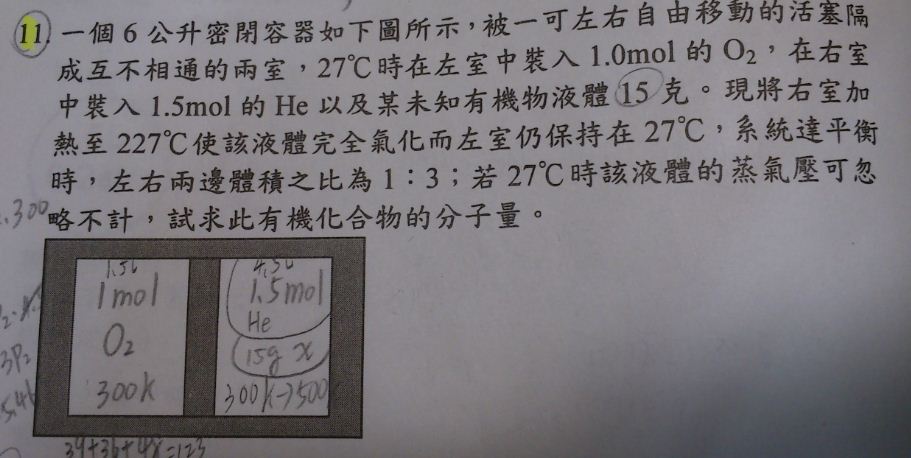 11. 一個 6 公升密閉容器如下圖所示，被一可左右自由移動的活塞隔
成互不相通的兩室，27℃時在左室中裝入 1.0mol 的 O₂，在右室
中裝入 1.5mol 的 He 以及某未知有機物液體 15 克。現將右室加
熱至 227℃使該液體完全氣化而左室仍保持在 27℃，系統達平衡
時，左右兩邊體積之比為 1：3；若 27℃時該液體的蒸氣壓可忽
略不計，試求此有機化合物的分子量。
300
1.5L
4.5L
1mol
1.5mol
He
O₂
15g x
300k
300k→500
3P₂